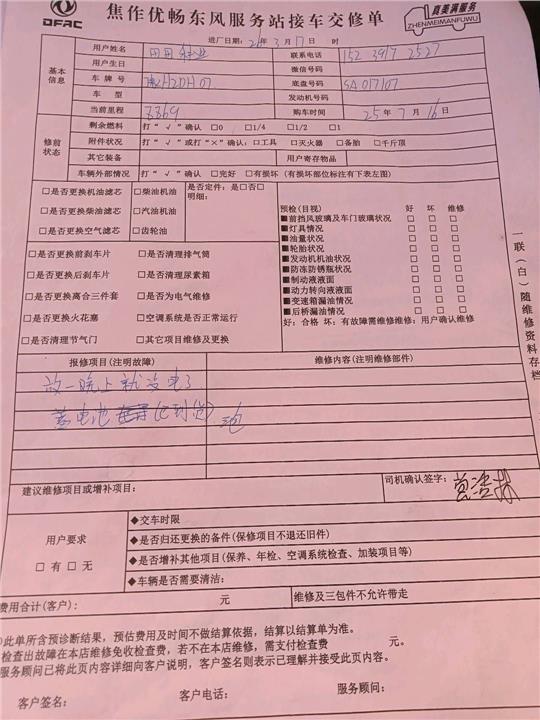 DFAC
焦作优畅东风服务站接车交修单
真美满服务
ZHENMEIMANFUWU
进厂日期: 26年 3月 17日 时
基本信息
用户姓名
联系电话 152 3917 2527
用户生日 微信号码
车牌号 H2DH07 底盘号码 SA017107
车型 发动机号码
当前里程 8869 购车时间 25年 7月 16日
修前状态
剩余燃料 打“√”确认 □0 □1/4 □1/2 □1
附件状况 打“√”或打“×”确认: □工具 □灭火器 □备胎 □千斤顶
其它装备 用户寄存物品
车辆外部情况 打“√”确认 □完好 □有损坏(有损坏部位标注有下表左图)
□是否更换机油滤芯 □柴油机油 是否定件: 是□否□
明细:
□是否更换柴油滤芯 □汽油机油
□是否更换空气滤芯 □齿轮油
预检(目视) 好 坏 维修
■前挡风玻璃及车门玻璃状况 □ □ □
■灯具情况 □ □ □
■油量状况 □ □ □
■轮胎状况 □ □ □
■发动机机油状况 □ □ □
■防冻防锈瓶状况 □ □ □
■制动液液面 □ □ □
■动力转向液液面 □ □ □
■变速箱漏油情况 □ □ □
■后桥漏油情况 □ □ □
好: 合格 坏: 有故障需维修维修: 用户确认维修
□是否更换前刹车片 □是否清理排气筒
□是否更换后刹车片 □是否清理尿素箱
□是否更换离合三件套 □是否为电气维修
□是否更换火花塞 □空调系统是否正常运行
□是否清理节气门 □其它项目维修及更换
一联(白)随维修资料存档
报修项目(注明故障) 维修内容(注明维修部件)
放一晚上就没电了
蓄电池 (已到货)
建议维修项目或增补项目: 司机确认签字:
用户要求
□有 □无
◆交车时限
◆是否归还更换的备件(保修项目不退还旧件)
◆是否增补其他项目(保养、年检、空调系统检查、加装项目等)
◆车辆是否需要清洁:
费用合计(客户): 元 维修及三包件不允许带走
)此单所含预诊断结果, 预估费用及时间不做结算依据, 结算以结算单为准。
检查出故障在本店维修免收检查费, 若不在本店维修, 需支付检查费 元。
服务顾问已将此页内容详细向客户说明, 客户签名则表示已理解并接受此页内容。
客户签名: 客户电话: 服务顾问: